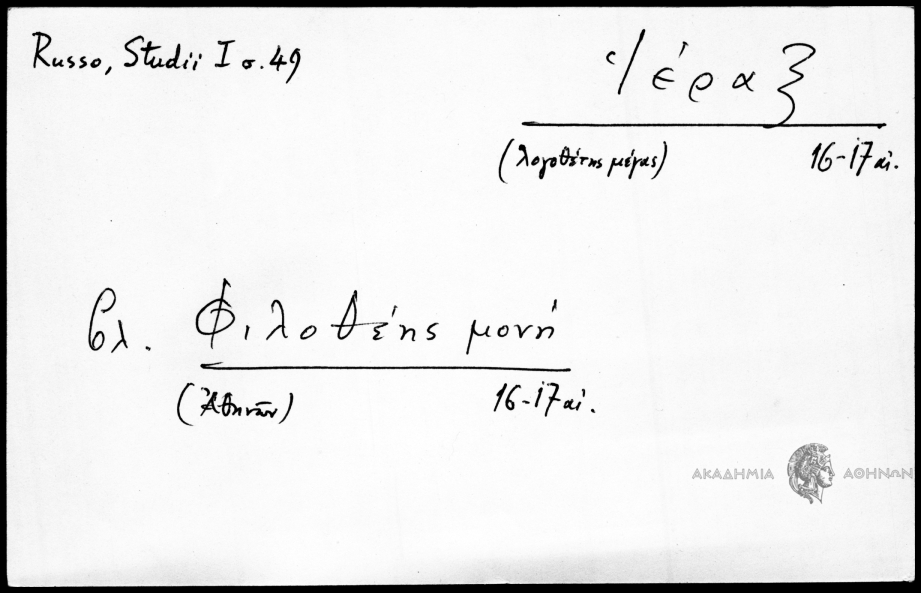 Russo, Studii I σ. 49
Ἱέραξ
(λογοθέτης μέγας) 16-17 αἰ.
βλ. Φιλοθέης μονή
(Ἀθηνῶν) 16-17 αἰ.
ΑΚΑΔΗΜΙΑ ΑΘΗΝΩΝ